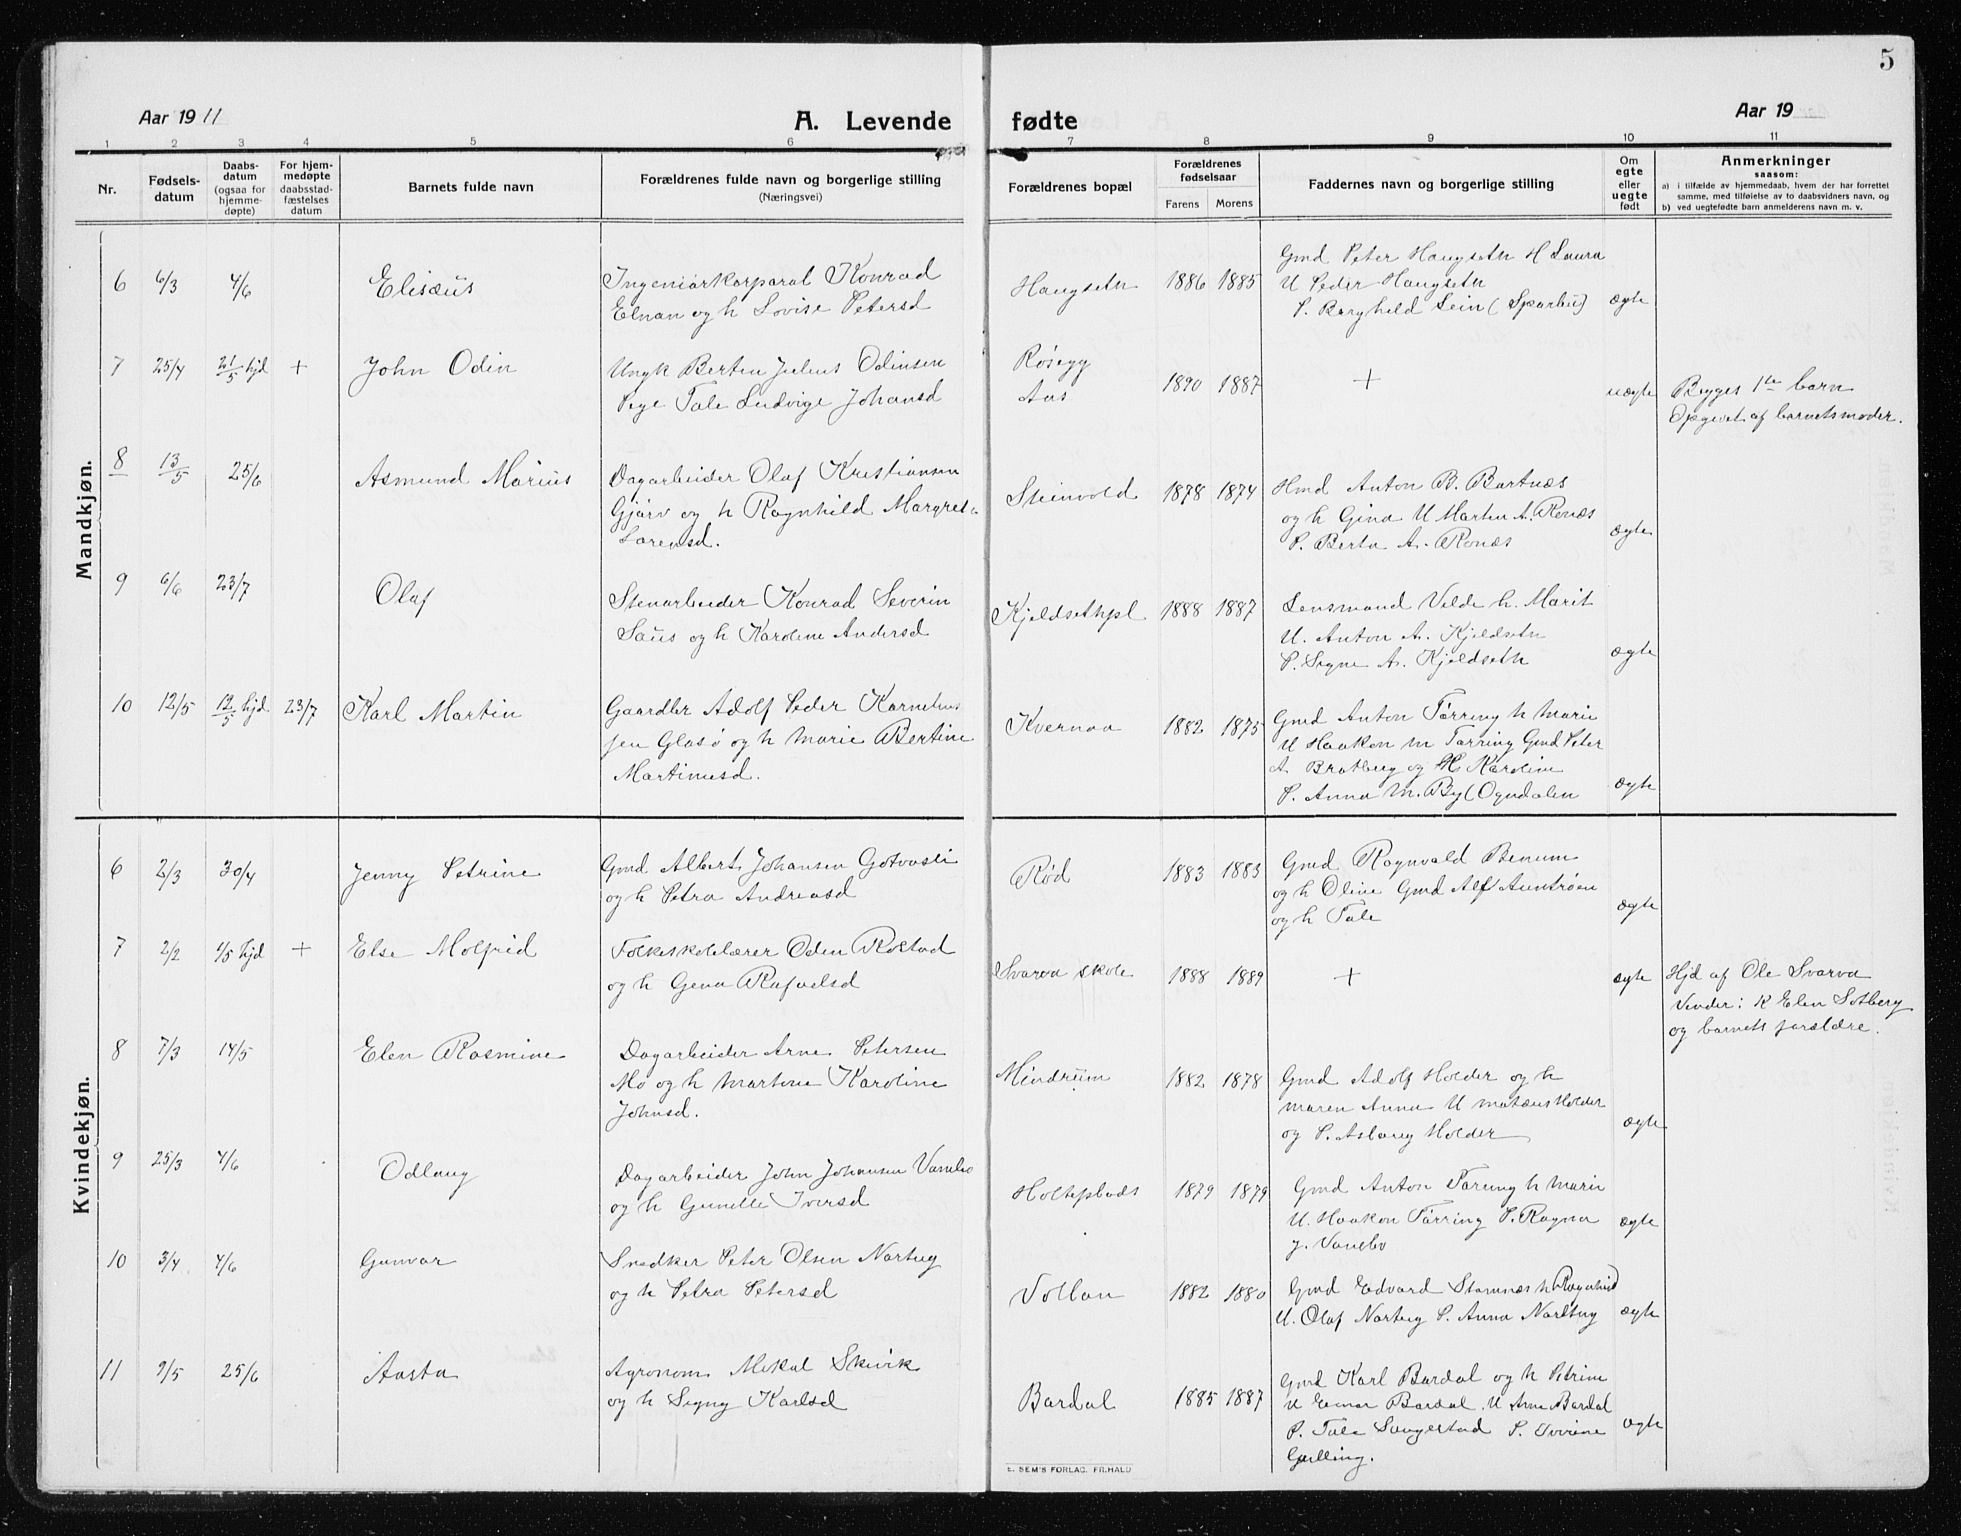 5
Aar 1911
A. Levende fødte
Aar 19
1 2 3 4 5 6 7 8 9 10 11
Nr.
Fødselsdatum
Daabsdatum (ogsaa for hjemmedøpte)
For hjemmedøpte daabsstadfæstelses datum
Barnets fulde navn
Forældrenes fulde navn og borgerlige stilling
(Næringsvei)
Forældrenes bopæl
Forældrenes fødselsaar
Farens Morens
Faddernes navn og borgerlige stilling
Om egte eller uegte født
Anmerkninger
saasom:
a) i tilfælde av hjemmedaab, hvem der har forrettet
samme, med tilføielse av to daabsvidners navn, og
b) ved uegtefødte barn anmelderens navn m. v.
Mandkjøn.
6 6/3 4/6 Elisæus
Ingeniørkorporal Konrad
Elnan og h Lovise Petersd
Haugseth 1886 1885
Gmd Peter Haugseth H Laura
U Peder Haugseth
P. Borghild Lein (Sparbu)
ægte
7 25/4 21/5 hjd + John Odin
Ungk Berten Julius Odinsen
Pige Tale Ludvige Johansd
Røsegg
Aas
1890 1887
+
uægte
Begges 1te barn
Opgivet af barnets moder.
8 13/5 25/6 Asmund Marius
Dagarbeider Olaf Kristiansen
Gjørv og h Ragnhild Margrete
Lorensd.
Steinvold 1878 1874
Gmd Anton B. Bartnæs
og h Gina U Martin A. Renæs
P. Berta A. Renæs
ægte
9 6/6 23/7 Olaf
Stenarbeider Konrad Severin
Saus og h Karoline Andersd
Kjeldsethpl 1888 1887
Lensmand Velde h. Marit
U. Anton A. Kjeldseth
P. Signe A. Kjeldseth
ægte
10 12/5 12/5 hjd 23/7 Karl Martin
Gaardbr Adolf Peder Kornelius
sen Glasø og h Marie Bertine
Martinusd.
Kvernaa 1882 1875
Gmd Anton Tørring h Marie
U Haakon M Tørring Gmd Peter
A Bratberg og H Karoline
P. Anna M. By (Ogndalen
ægte
Kvindekjøn.
6 2/3 30/4 Jenny Petrine
Gmd Albert Johansen Gotvasli
og h Petra Andreasd
Rød 1883 1883
Gmd Ragnvald Benum
og h Oline Gmd Alf Auntrøen
og h Tale
ægte
7 2/2 4/5 hjd + Else Molfrid
Folkeskolelærer Oden Rostad
og h Gena Rafaelsd
Svarva skole 1888 1889
+
ægte
Hjd af Ole Svarva
Vinder: K Elen Solberg
og barnets forældre.
8 7/3 14/5 Elen Rasmine
Dagarbeider Arne Petersen
Mo og h Martine Karoline
Johnsd.
Mindrum 1882 1878
Gmd Adolf Holder og h
Maren Anna U Matæus Holder
og P. Aslaug Holder
ægte
9 25/3 4/6 Odlaug
Dagarbeider John Johansen Vanebo
og h Gunelle Iversd
Holteplads 1879 1879
Gmd Anton Tørring h Marie
U. Haakon Tørring P. Ragna
J. Vanebo
ægte
10 3/4 4/6 Gunvor
Snedker Peter Olsen Nortug
og h Petra Petersd
Vollan 1882 1880
Gmd Edvard Stamnæs h Ragnhild
U. Olaf Nortug P. Anna Nortug
ægte
11 9/5 25/6 Aasta
Agronom Mikal Skevik
og h Signy Karlsd
Bardal 1885 1887
Gmd Karl Bardal og h Petrine
U Einar Bardal U Arne Bardal
P. Tale Saugestad P.
Gulling.
ægte
E. SEM'S FORLAG. FR.HALD